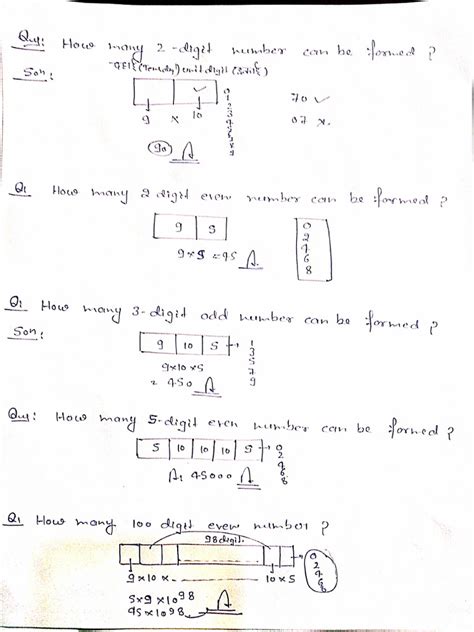 Qus: How many 2-digit number can be formed ?
Son:
unit digit
0
1
2
3
4
5
9 × 10
70 ✓
07 ×.
90 A
Q: How many 2 digit even number can be formed ?
9 5
0
2
4
6
8
9×5 = 45 A.
Q: How many 3-digit odd number can be formed ?
Son:
9 10 5 → 1
3
5
7
9
9×10×5
= 450 A
Qus: How many 5-digit even number can be formed ?
5 10 10 10 5 → 0
2
4
6
8
A: 45000 A
Q: How many 100 digit even number ?
98 digit.
0
2
4
6
8
9×10 × - - - - - - 10×5
5×9×10^98
45×10^98. A